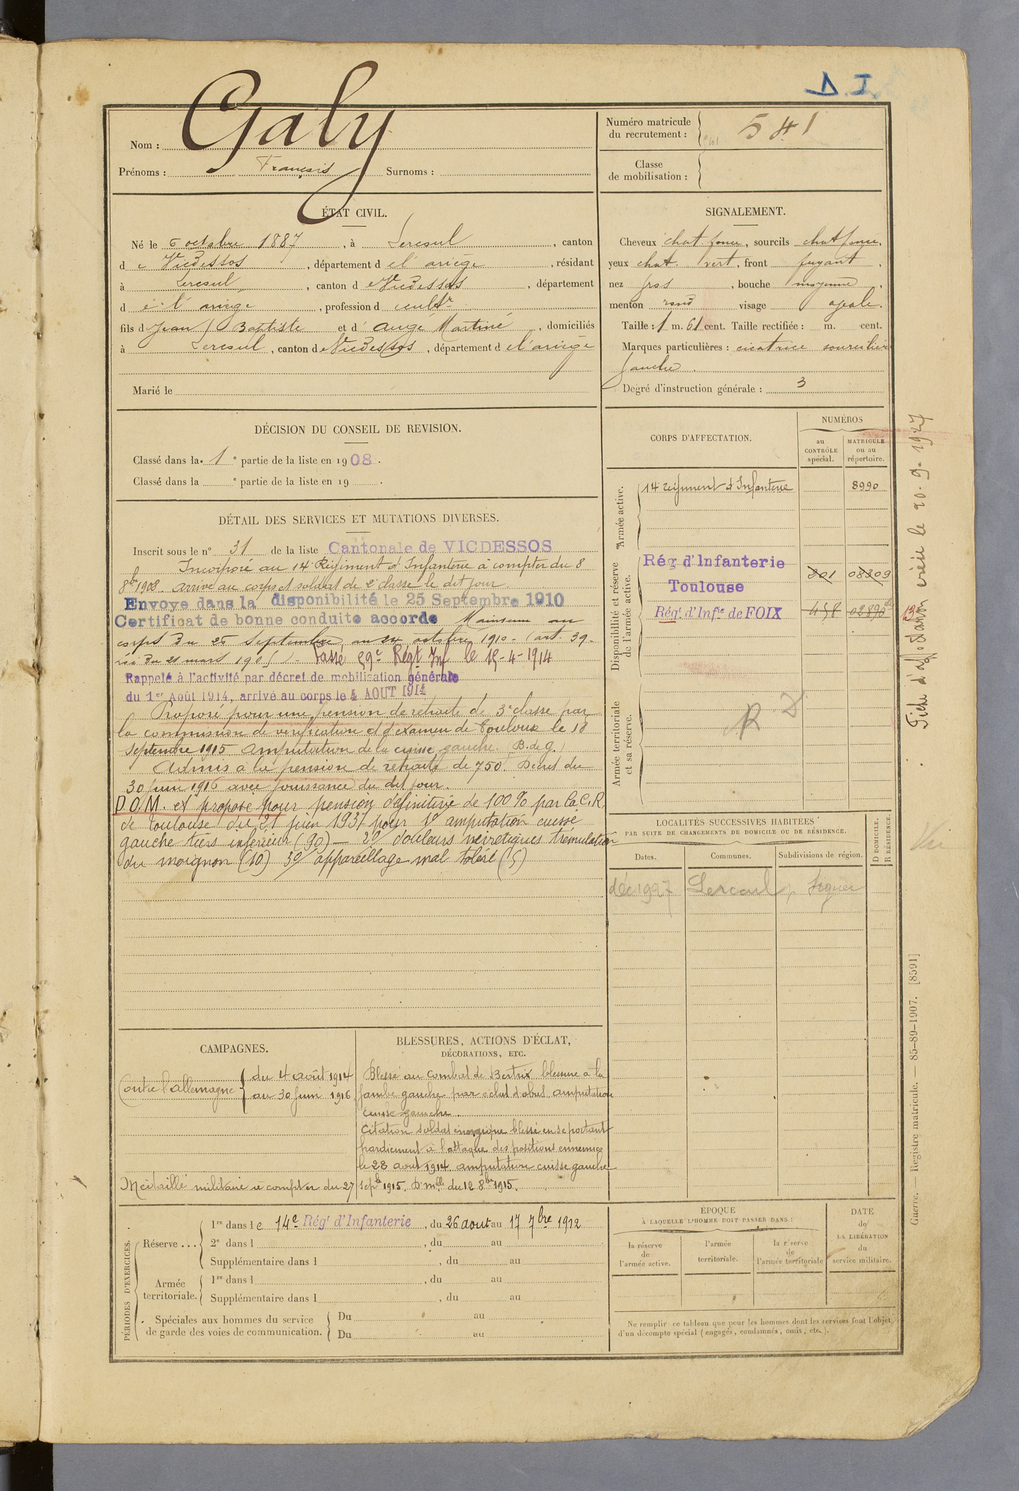 D. I.
Nom : Galy
Prénoms : François Surnoms :
Numéro matricule du recrutement : 541
Classe de mobilisation :
ÉTAT CIVIL.
Né le 6 octobre 1887, à Lercoul, canton
de Vicdessos, département de l'ariège, résidant
à Lercoul, canton de Vicdessos, département
de l'ariège, profession de cultr
fils de Jean Baptiste et d'Ange Martine, domiciliés
à Lercoul, canton de Vicdessos, département de l'ariège
Marié le
SIGNALEMENT.
Cheveux chat foncé, sourcils chat foncé,
yeux chat. vert, front fuyant,
nez gros, bouche moyenne,
menton rond visage ovale.
Taille : 1 m. 61 cent. Taille rectifiée : m. cent.
Marques particulières : cicatrice sourcilière
gauche.
Degré d'instruction générale : 3
DÉCISION DU CONSEIL DE REVISION.
Classé dans la 1e partie de la liste en 1908.
Classé dans la e partie de la liste en 19 .
DÉTAIL DES SERVICES ET MUTATIONS DIVERSES.
Inscrit sous le n° 31 de la liste Cantonale de VICDESSOS
Incorporé au 14e Régiment d'Infanterie à compter du 8
8bre 1908. Arrivé au corps et soldat de 2e classe le dit jour.
Envoyé dans la disponibilité le 25 Septembre 1910
Certificat de bonne conduite accordé Maintenu au
corps du 25 Septembre au 24 octobre 1910. (art. 39.
loi du 21 mars 1905). Passé 59e Régt Inf le 15-4-1914
Rappelé à l'activité par décret de mobilisation générale
du 1er Août 1914, arrivé au corps le 4 AOUT 1914
Proposé pour une pension de retraite de 3e classe par
la commission de vérification et d'examen de Toulouse le 18
Septembre 1915 amputation de la cuisse gauche. (B. de g.)
Admis à la pension de retraite de 750f. Décret du
30 Juin 1916 avec jouissance du dit jour.
D.O.M. est proposé pour pension définitive de 100% par la C.R.
de Toulouse du 21 juin 1937 pour 1° amputation cuisse
gauche tiers inférieur (90) — 2° douleurs névritiques trémulation
du moignon (10) 3° appareillage mal toléré (5)
CORPS D'AFFECTATION.
NUMÉROS
au CONTRÔLE spécial.
MATRICULE ou au répertoire.
Armée active.
14e Régiment d'Infanterie 8990
Disponibilité et réserve de l'armée active.
Rég. d'Infanterie Toulouse 801 08209
Régt d'Infie de FOIX 458 02895
Armée territoriale et sa réserve.
R D
LOCALITÉS SUCCESSIVES HABITÉES
PAR SUITE DE CHANGEMENTS DE DOMICILE OU DE RÉSIDENCE.
Dates. Communes. Subdivisions de région. D DOMICILE. R RÉSIDENCE.
déc 1927 Lercoul, Siguer
CAMPAGNES.
Contre l'allemagne du 4 août 1914
au 30 Juin 1916
BLESSURES, ACTIONS D'ÉCLAT,
DÉCORATIONS, ETC.
Blessé au combat de Bertrix blessure à la
jambe gauche par éclat d'obus. amputation
cuisse gauche.
Citation soldat énergique blessé en se portant
hardiement à l'attaque des positions ennemies
le 23 aout 1914. amputation cuisse gauche
Médaille militaire à compter du 27 septbre 1915. D. mlle du 12 8bre 1915.
PÉRIODES D'EXERCICES.
Réserve...
1re dans le 14e Régt d'Infanterie, du 26 aout au 17 7bre 1912
2e dans l , du au
Supplémentaire dans l , du au
Armée territoriale.
1re dans l , du au
Supplémentaire dans l , du au
Spéciales aux hommes du service
de garde des voies de communication.
Du au
Du au
ÉPOQUE
À LAQUELLE L'HOMME DOIT PASSER DANS :
la réserve de l'armée active.
l'armée territoriale.
la réserve de l'armée territoriale
DATE de LA LIBÉRATION du service militaire.
Ne remplir ce tableau que pour les hommes dont les services font l'objet
d'un décompte spécial (engagés, condamnés, omis, etc.).
Guerre. — Registre matricule. — 85-89-1907. [8591]